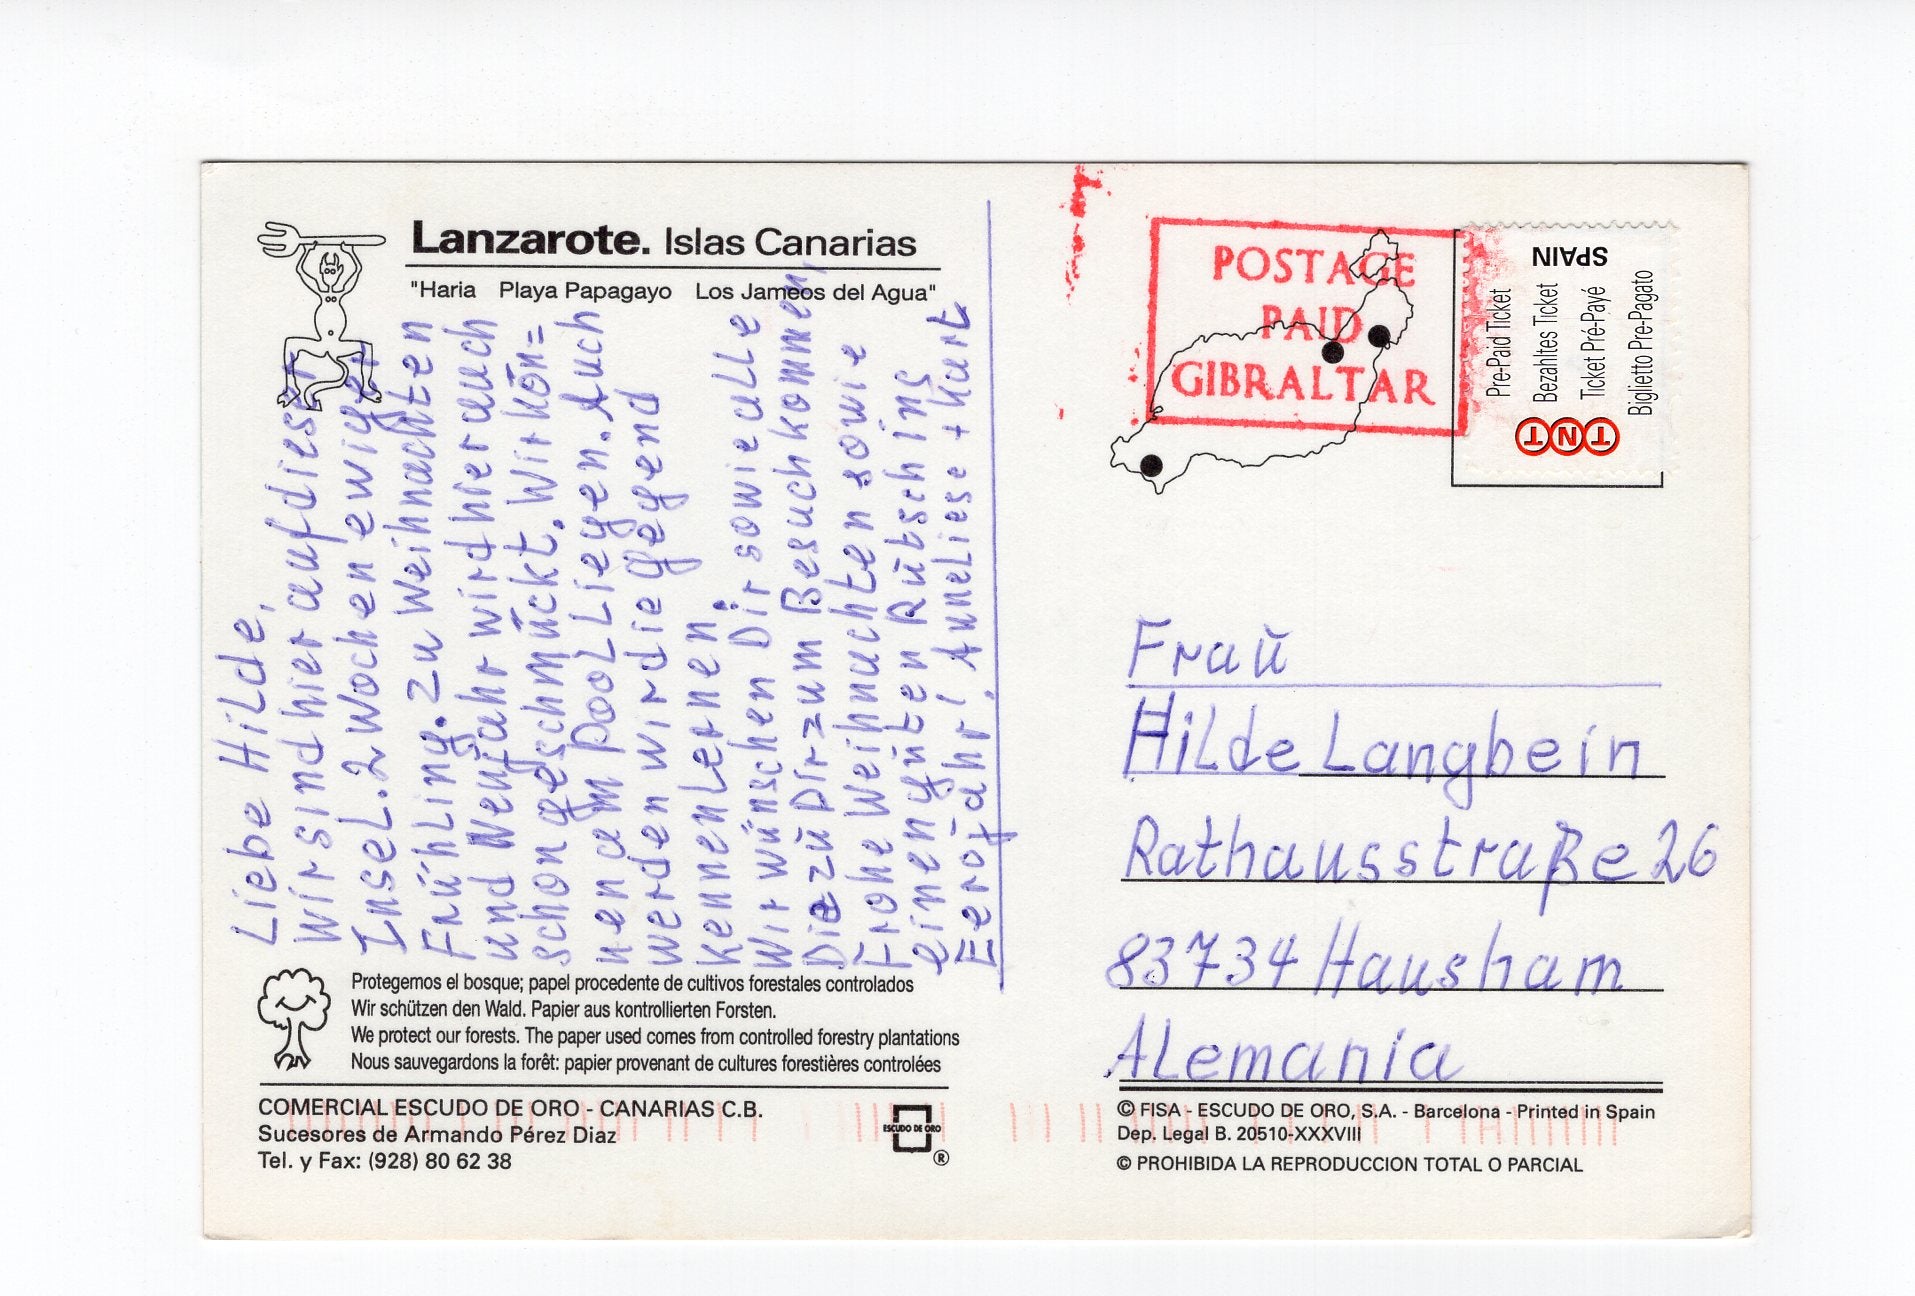 Lanzarote. Islas Canarias
"Haria Playa Papagayo Los Jameos del Agua"
Liebe Hilde,
wir sind hier auf dieser
Insel. 2 Wochen ewiger
Frühling. Zu Weihnachten
und Neujahr wird hier auch
schon geschmückt. Wir kön=
nen am Pool liegen. Auch
werden wir die Gegend
kennenlernen.
Wir wünschen Dir sowie alle
Die zu Dir zum Besuch kommen,
Frohe Weihnachten sowie
einen guten Rutsch ins
Euro-Jahr! Anneliese + Kurt
Protegemos el bosque; papel procedente de cultivos forestales controlados
Wir schützen den Wald. Papier aus kontrollierten Forsten.
We protect our forests. The paper used comes from controlled forestry plantations
Nous sauvegardons la forêt: papier provenant de cultures forestières controlées
COMERCIAL ESCUDO DE ORO - CANARIAS C.B.
Sucesores de Armando Pérez Diaz
Tel. y Fax: (928) 80 62 38
ESCUDO DE ORO
®
POSTAGE
PAID
GIBRALTAR
SPAIN
Pre-Paid Ticket
Bezahltes Ticket
Ticket Pré-Payé
Biglietto Pre-Pagato
TNT
Frau
Hilde Langbein
Rathausstraße 26
83734 Hausham
Alemania
© FISA - ESCUDO DE ORO, S.A. - Barcelona - Printed in Spain
Dep. Legal B. 20510-XXXVIII
© PROHIBIDA LA REPRODUCCION TOTAL O PARCIAL